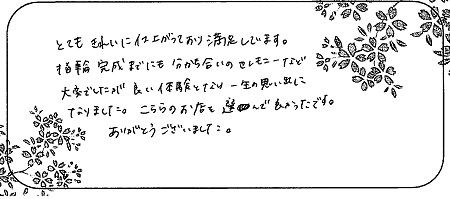 とても きれいに仕上がっており満足しています。
指輪完成までにも 分かち合いのセレモニーなど
大変でしたが 良い体験となり 一生の思い出に
なりました。こちらのお店を選んで良かったです。
ありがとうございました。